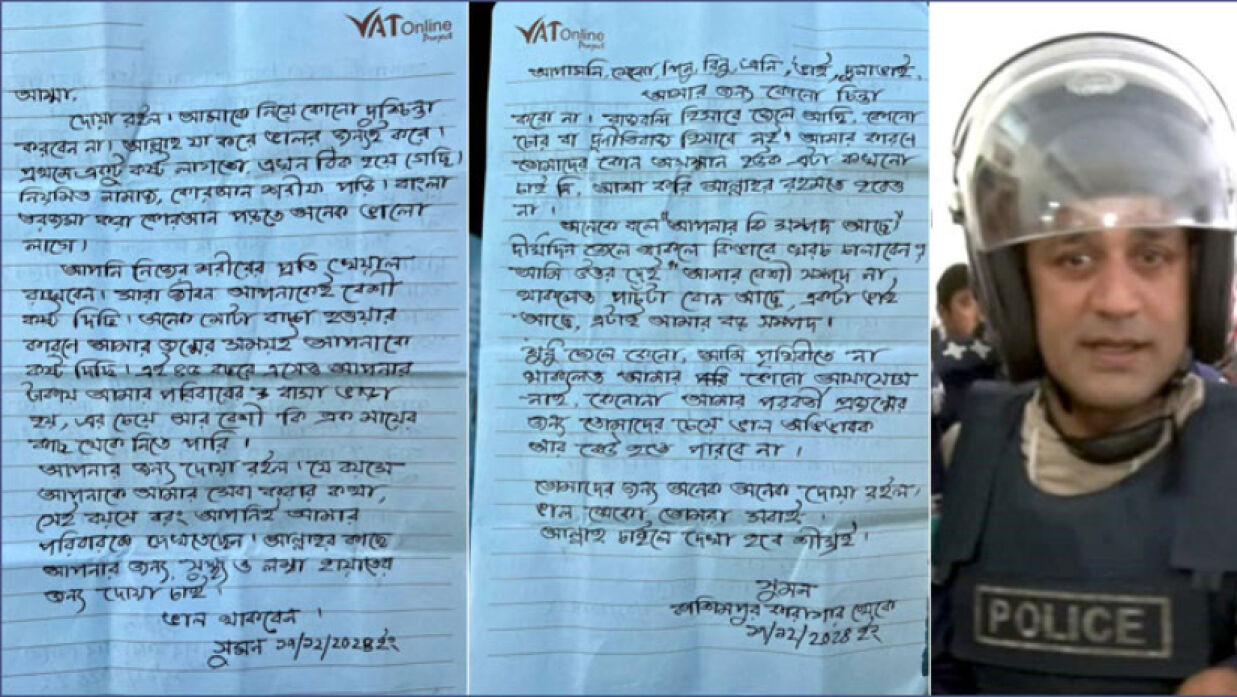 VAT Online
Project
আম্মা,
দোয়া রইল। আমাকে নিয়ে কোনো দুশ্চিন্তা
করবেন না। আল্লাহ যা করে ভালর জন্যই করে।
প্রথমে একটু কষ্ট লাগতো, এখন ঠিক হয়ে গেছি।
নিয়মিত নামাজ, কোরআন শরীফ পড়ি। বাংলা
তরজমা করা কোরআন পড়তে অনেক ভালো
লাগে।
আপনি নিজের শরীরের প্রতি খেয়াল
রাখবেন। সারা জীবন আপনাকেই বেশী
কষ্ট দিছি। অনেক মোটা বাচ্চা হওয়ার
কারনে আমার জন্মের সময়ই আপনাকে
কষ্ট দিছি। এই বছরে এসেও আপনার
টাকায় আমার পরিবারের বাসা ভাড়া
হয়, এর চেয়ে আর বেশী কি এক মায়ের
কাছ থেকে নিতে পারি।
আপনার জন্য দোয়া রইল। যে বয়সে
আপনাকে আমার সেবা করার কথা,
সেই বয়সে বরং আপনিই আমার
পরিবারকে দেখতেছেন। আল্লাহর কাছে
আপনার জন্য, সুস্থ্য ও লম্বা হায়াতের
জন্য দোয়া চাই।
ভাল থাকবেন।
সুমন ২৭/১২/২০২৪ ইং
VAT Online
Project
আপামনি, ভাই, দুলাভাই,
আমার জন্য কোনো চিন্তা
করো না। রাজবন্দি হিসাবে জেলে আছি, কোনো
চোর বা দুর্নীতিবাজ হিসাবে নই। আমার কারনে
তোমাদের কোন অসম্মান হউক এটা কখনো
চাই নি, আশা করি আল্লাহর রহমতে হবেও
না।
অনেকে বলে "আপনার কি সম্পদ আছে"
দীর্ঘদিন জেলে থাকলে কিভাবে খরচ চালাবেন?
আমি উত্তর দেই "আমার বেশী সম্পদ না
থাকলেও পাচটা বোন আছে, একটা ভাই
আছে, এটাই আমার বড় সম্পদ।
শুধু জেলে কেনো, আমি পৃথিবীতে না
থাকলেও আমার কোনো আফসোস
নাই, কেননা আমার পরবর্তী প্রজন্মের
জন্য তোমাদের চেয়ে ভাল অভিভাবক
আর কেউ হতে পারবে না।
তোমাদের জন্য অনেক অনেক দোয়া রইল।
ভাল থেকো তোমরা সবাই।
আল্লাহ চাইলে দেখা হবে শীঘ্রই।
সুমন
কাশিমপুর কারাগার থেকে
২৭/১২/২০২৪ ইং
POLICE